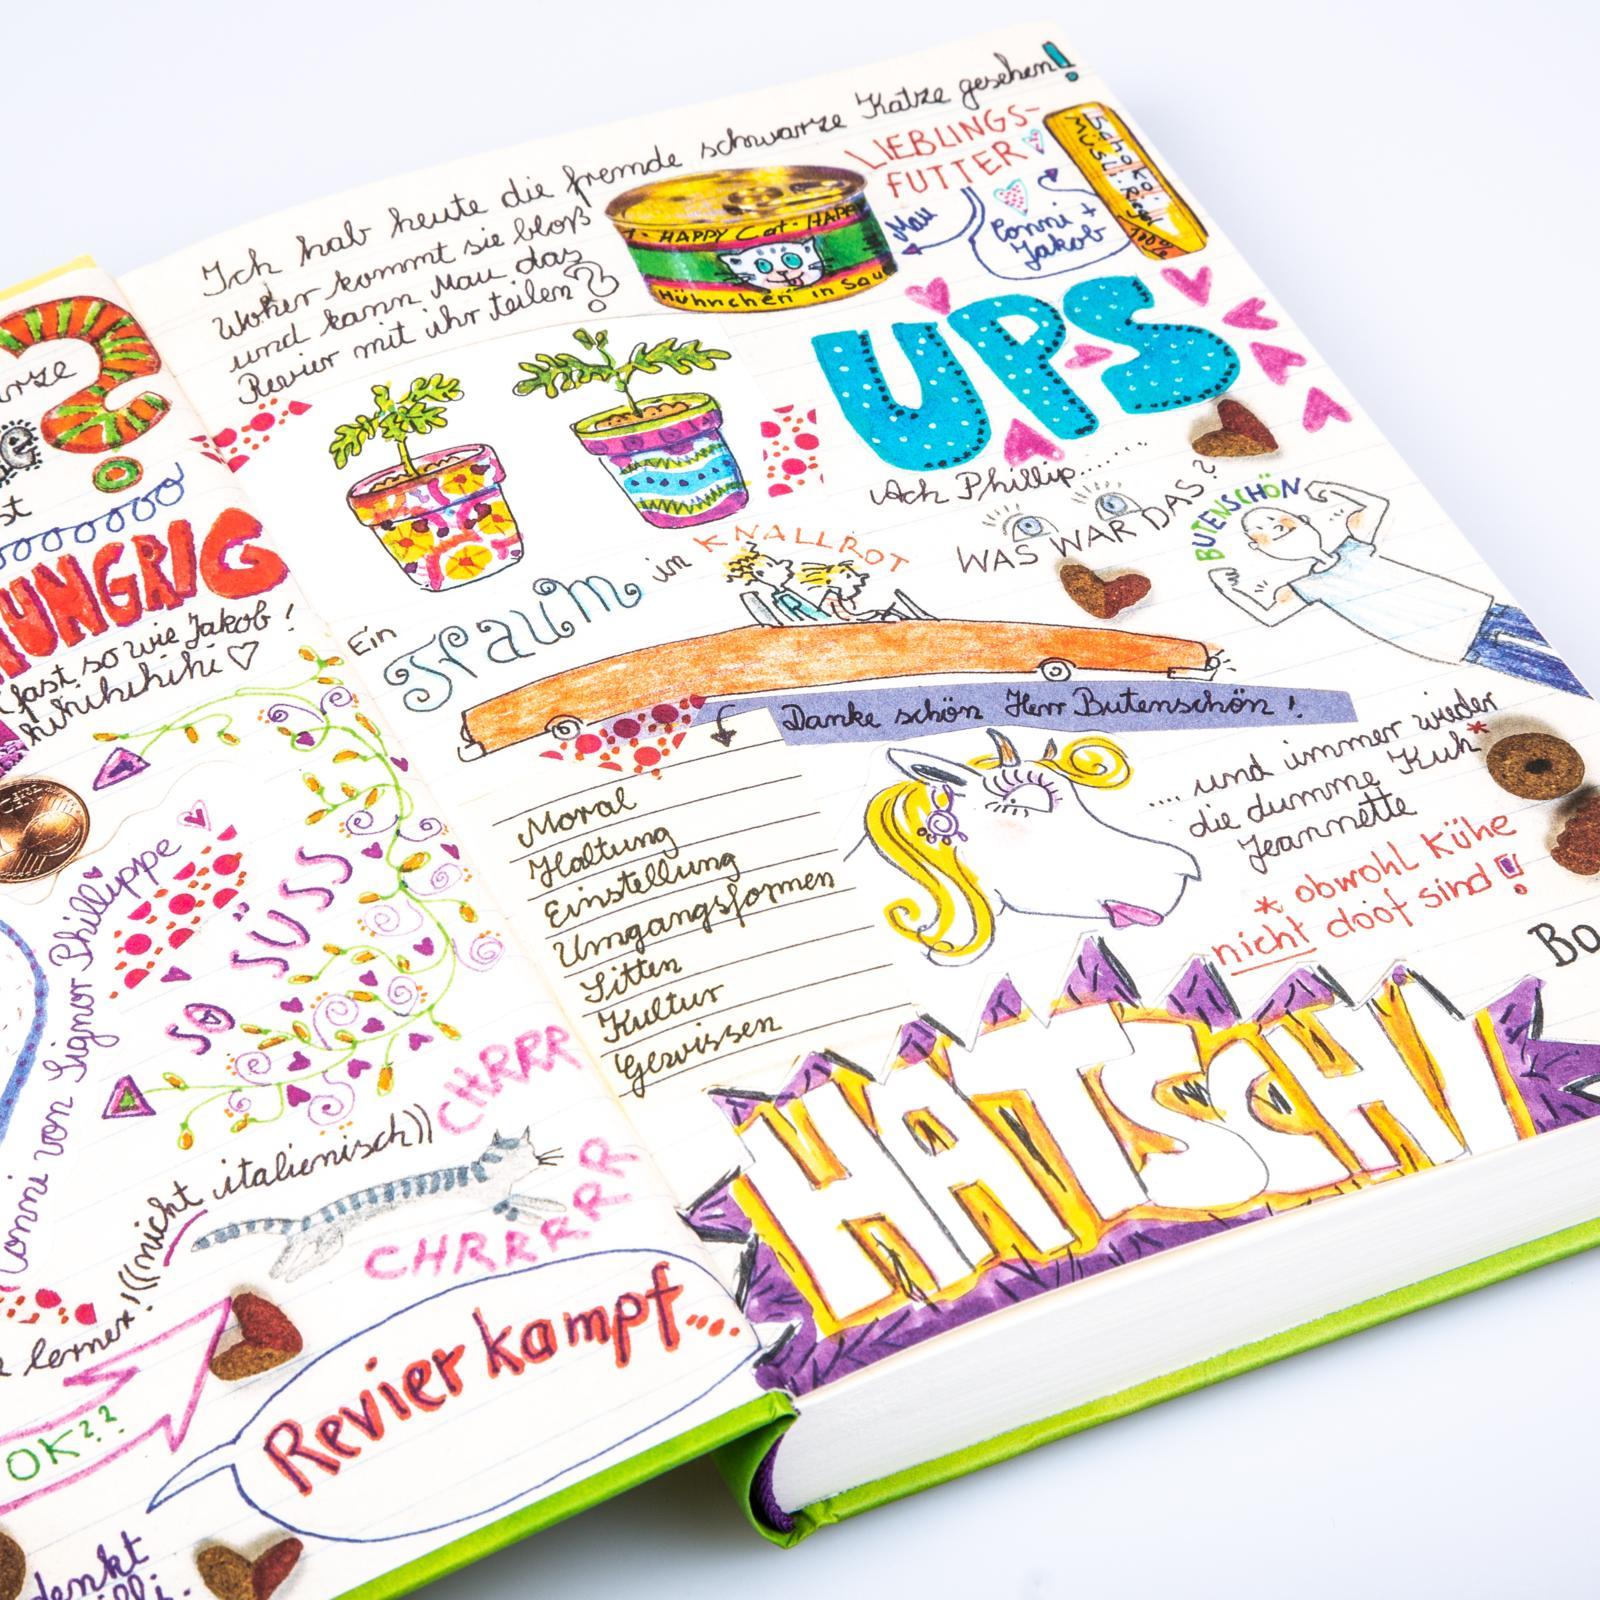 rze
st
HUNGRIG
fast so wie Jakob!
hihihihihi
SO SÜSS
Conni von Signor Phillippe
((nicht italienisch))
CHRRR
CHRRRR
lernen!
OK??
Revierkampf...
denkt
Ich hab heute die fremde schwarze Katze gesehen!
Woher kommt sie bloß
und kann Mau das
Revier mit ihr teilen?
HAPPY Cat · HAPP
Hühnchen in Sau
LIEBLINGS-
FUTTER
Mau
Conni +
Jakob
Schoko
MÜSLI-Riegel
UPS
Ach Phillip.......
WAS WAR DAS?
BUTENSCHÖN
Ein Traum in KNALLROT
Danke schön Herr Butenschön!
Moral
Haltung
Einstellung
Umgangsformen
Sitten
Kultur
Gewissen
.... und immer wieder
die dumme Kuh*
Jeannette
* obwohl Kühe
nicht doof sind!
Bo
HATSCHI